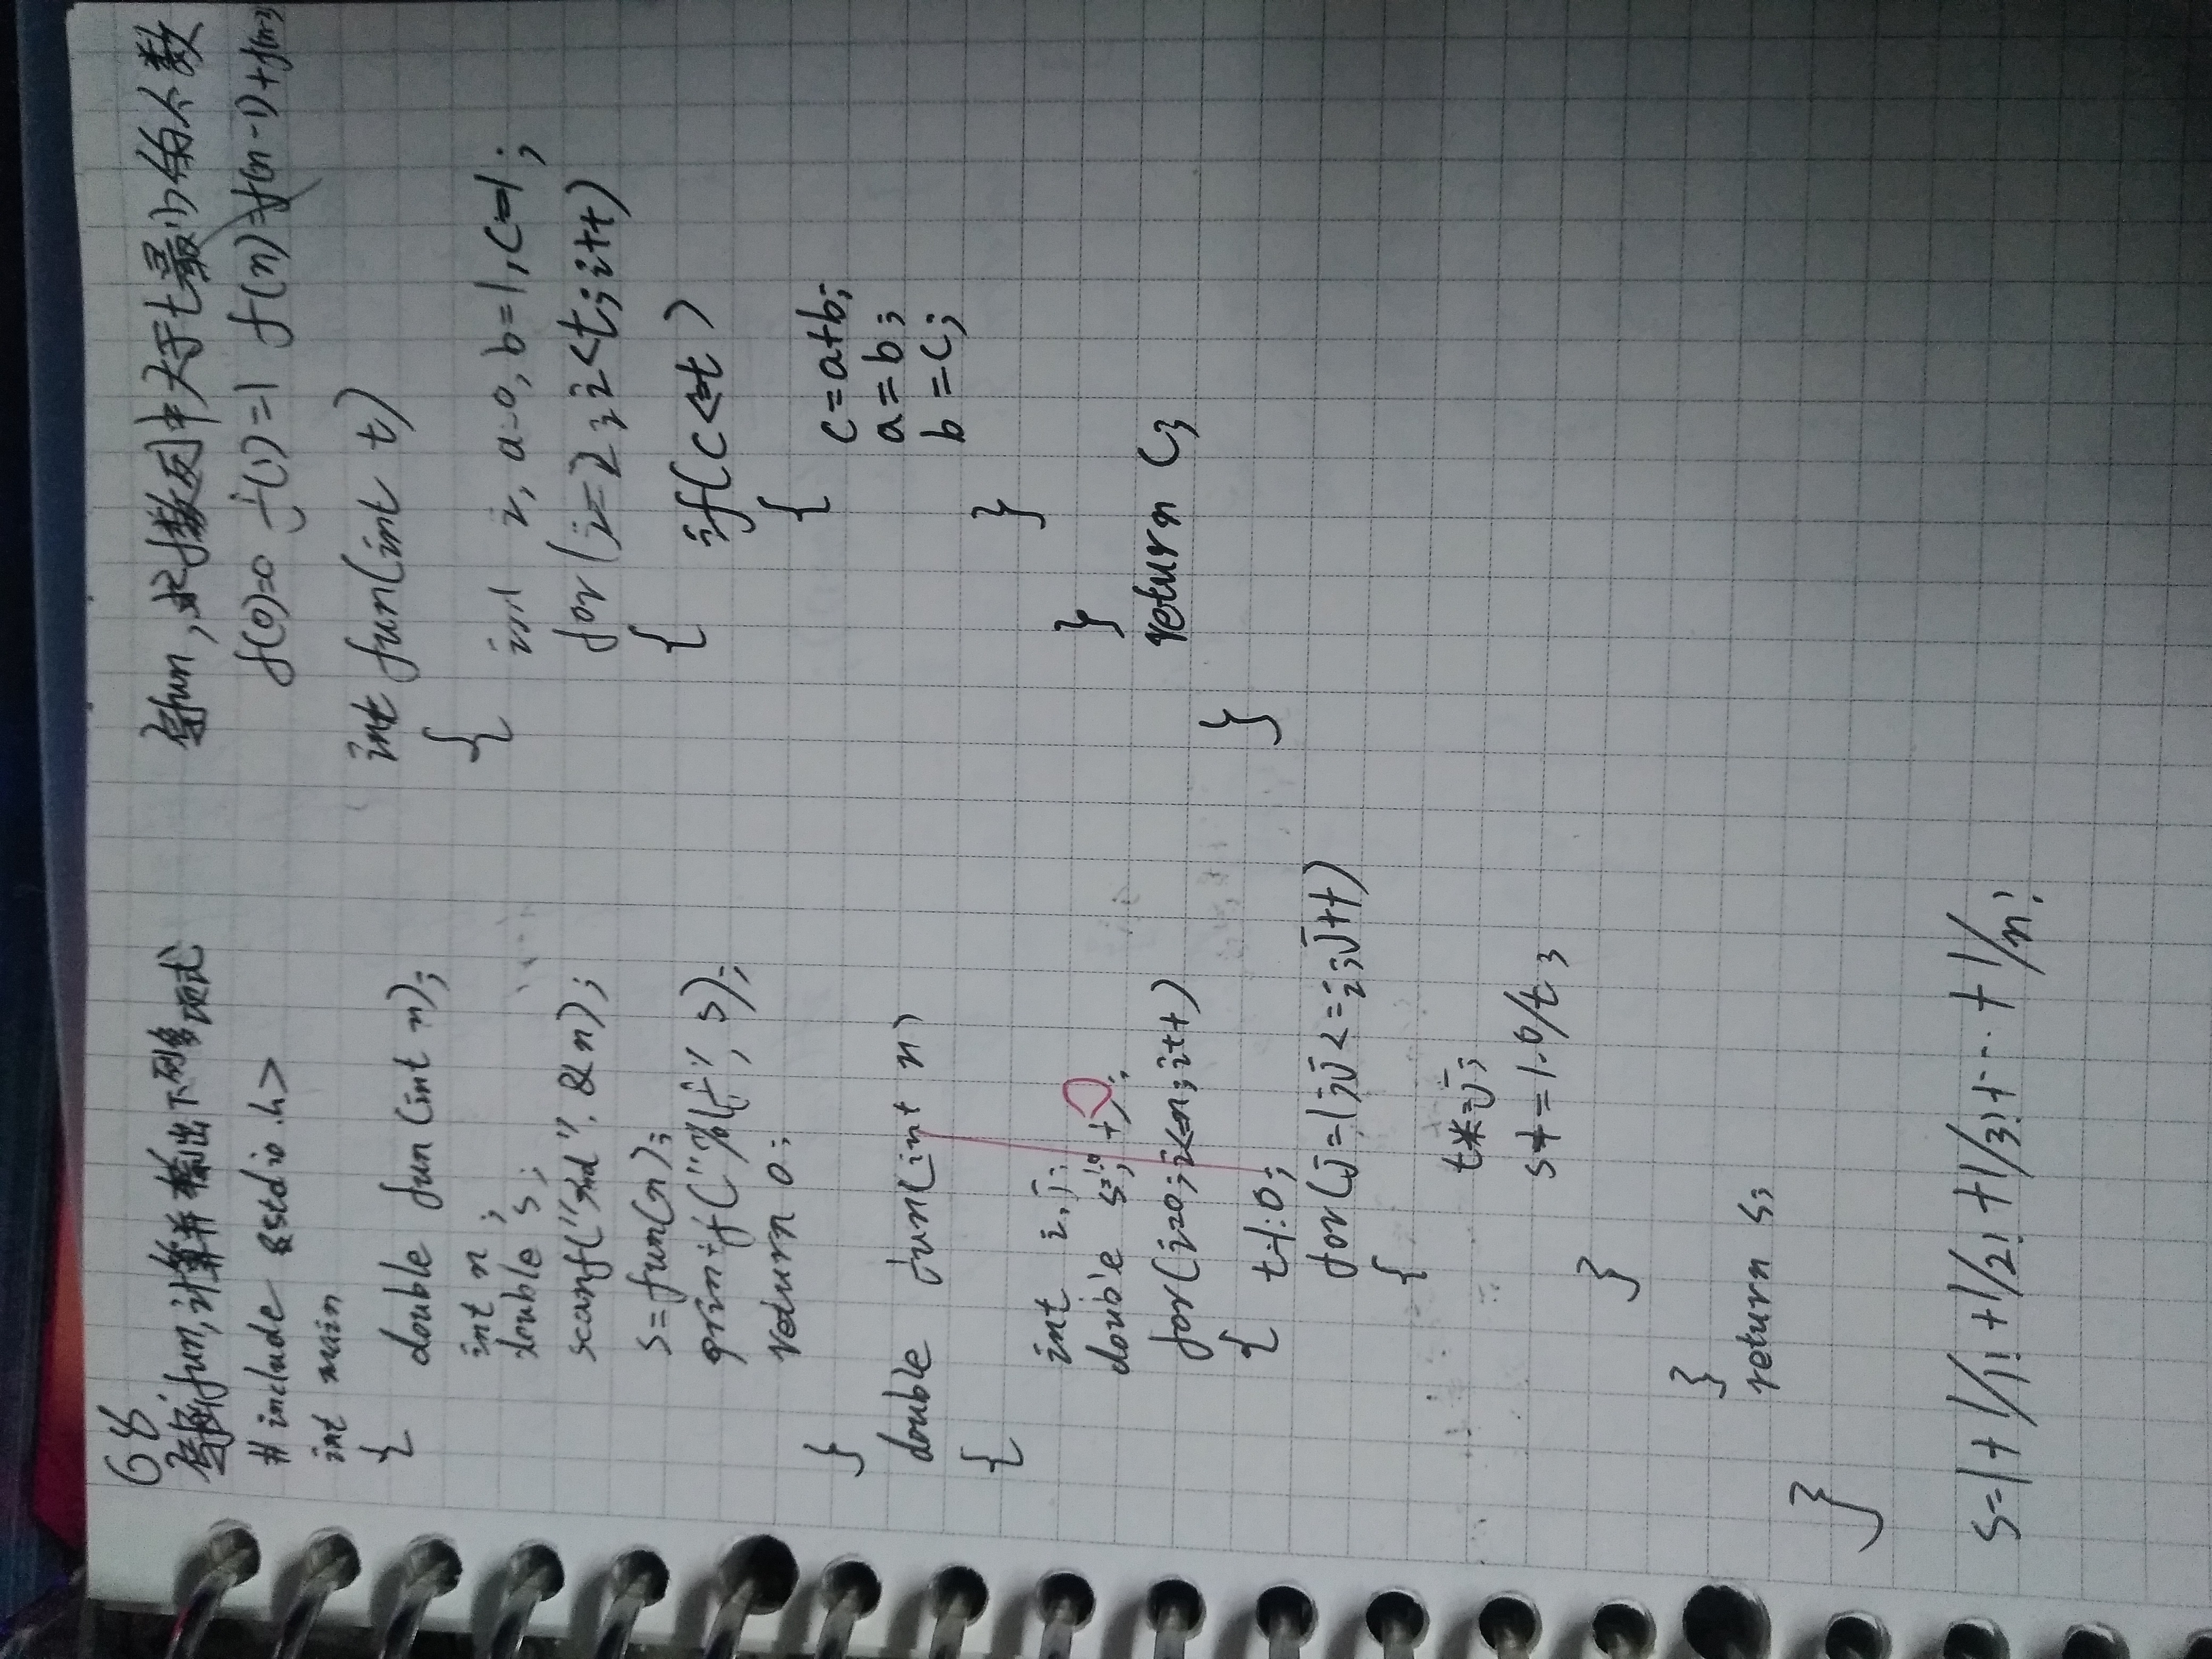 68
写fun,计算并输出下列多项式
#include <stdio.h>
int main
{
double fun(int n);
int n;
double s;
scanf("%d",&n);
s=fun(n);
printf("%f",s);
return 0;
}
double fun(int n)
{
int i,j;
double s=0,t;
for(i=0;i<=n;i++)
{ t=1.0;
for(j=1;j<=i;j++)
{
t*=j;
s+=1.0/t;
}
}
return s;
}
s=1+1/1!+1/2!+1/3!+...+1/n!
写fun,求f数列中大于t最小的个数
f(0)=0 f(1)=1 f(n)=f(n-1)+f(n-2)
int fun(int t)
{
int i,a=0,b=1,c=1;
for(i=2;i<t;i++)
{
if(c<=t)
{
c=a+b;
a=b;
b=c;
}
}
return c;
}